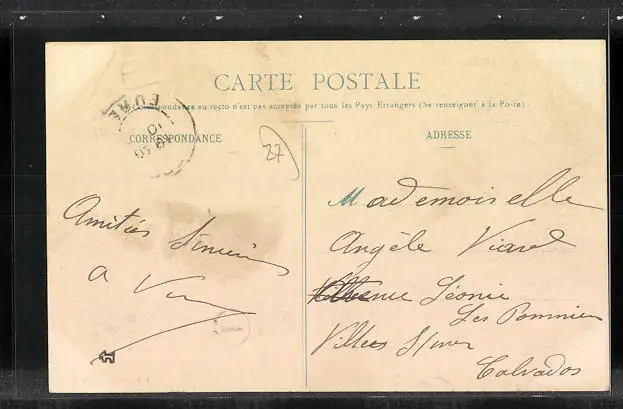 CARTE POSTALE
La Correspondance au recto n'est pas acceptée par tous les Pays Etrangers (Se renseigner à la Poste)
CORRESPONDANCE
ADRESSE
EURE
27
Amitiés
a
Mademoiselle
Angèle Viard
Léonie
Les Pommiers
Villers S/mer
Calvados